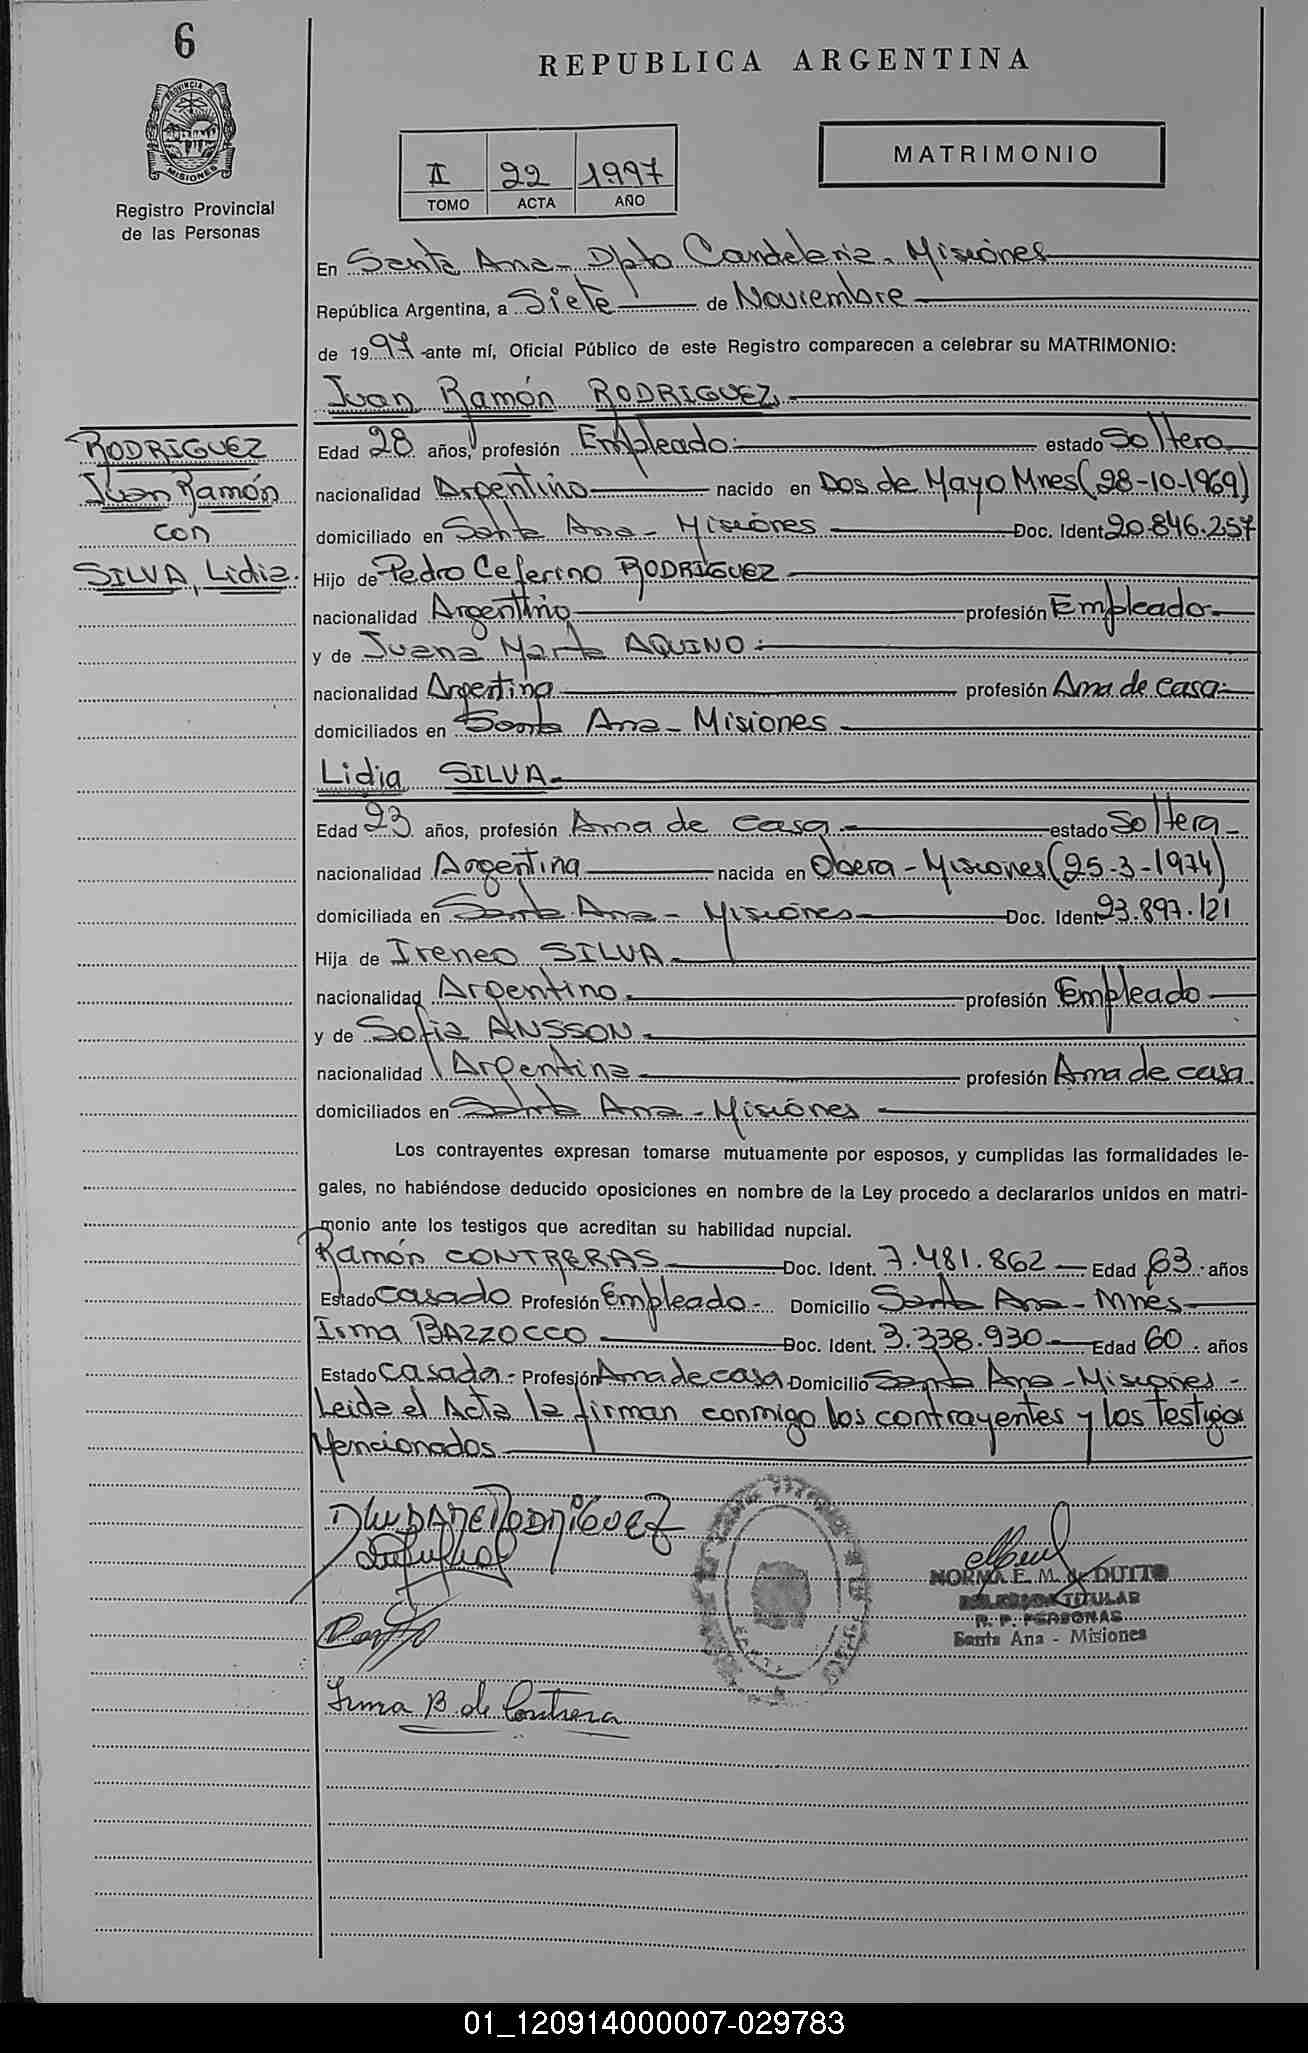 6
REPUBLICA ARGENTINA
MATRIMONIO
II 22 1997
TOMO ACTA AÑO
Registro Provincial
de las Personas
En Santa Ana - Dpto Candelaria - Misiones
República Argentina, a Siete de Noviembre
de 1997 -ante mí, Oficial Público de este Registro comparecen a celebrar su MATRIMONIO:
Juan Ramón RODRIGUEZ
RODRIGUEZ
Juan Ramón
con
SILVA, Lidia.
Edad 28 años, profesión Empleado.- estado Soltero
nacionalidad Argentino nacido en Dos de Mayo Mnes (28-10-1969)
domiciliado en Santa Ana - Misiones Doc. Ident. 20.846.257
Hijo de Pedro Ceferino RODRIGUEZ
nacionalidad Argentino profesión Empleado-
y de Juana Marta AQUINO.-
nacionalidad Argentina profesión Ama de casa.-
domiciliados en Santa Ana - Misiones
Lidia SILVA-
Edad 23 años, profesión Ama de casa.- estado Soltera-
nacionalidad Argentina nacida en Obera - Misiones (25-3-1974)
domiciliada en Santa Ana - Misiones Doc. Ident. 23.897.121
Hija de Ireneo SILVA-
nacionalidad Argentino. profesión Empleado
y de Sofia ANSSON-
nacionalidad Argentina profesión Ama de casa
domiciliados en Santa Ana - Misiones
Los contrayentes expresan tomarse mutuamente por esposos, y cumplidas las formalidades le-
gales, no habiéndose deducido oposiciones en nombre de la Ley procedo a declararlos unidos en matri-
monio ante los testigos que acreditan su habilidad nupcial.
Ramón CONTRERAS Doc. Ident. 7.481.862 Edad 63 años
Estado Casado Profesión Empleado- Domicilio Santa Ana - Mnes
Irma BAZZOCCO Doc. Ident. 3.338.930 Edad 60 años
Estado Casada- Profesión Ama de casa Domicilio Santa Ana - Misiones-
Leida el Acta la firman conmigo los contrayentes y los testigos
Mencionados
RODRÍGUEZ
NORMA E. M. de DUTTO
TITULAR
R. P. PERSONAS
Santa Ana - Misiones
Irma B. de Contrera
01_120914000007-029783